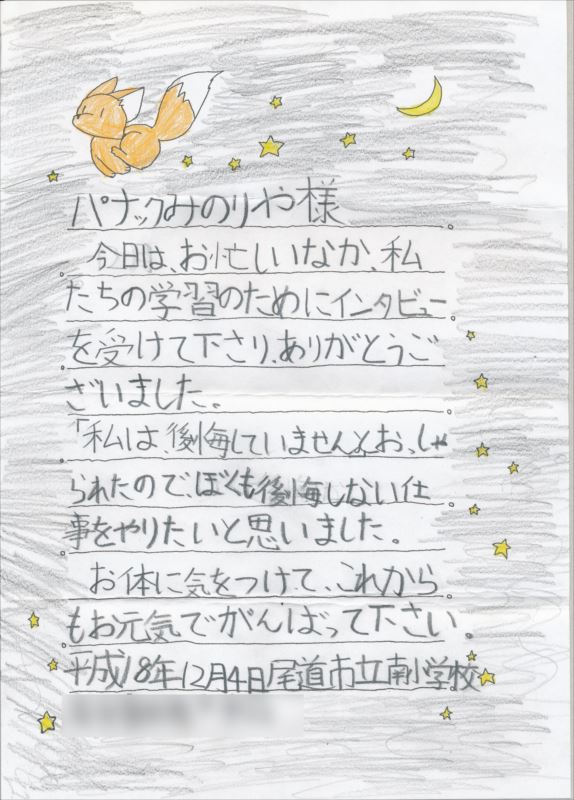 パナックみのりや様
今日は、お忙しいなか、私
たちの学習のためにインタビュー
を受けて下さり、ありがとうご
ざいました。
「私は、後悔していません」とおっしゃ
られたので、ぼくも後悔しない仕
事をやりたいと思いました。
お体に気をつけて、これから
もお元気でがんばって下さい。
平成18年12月4日尾道市立南小学校